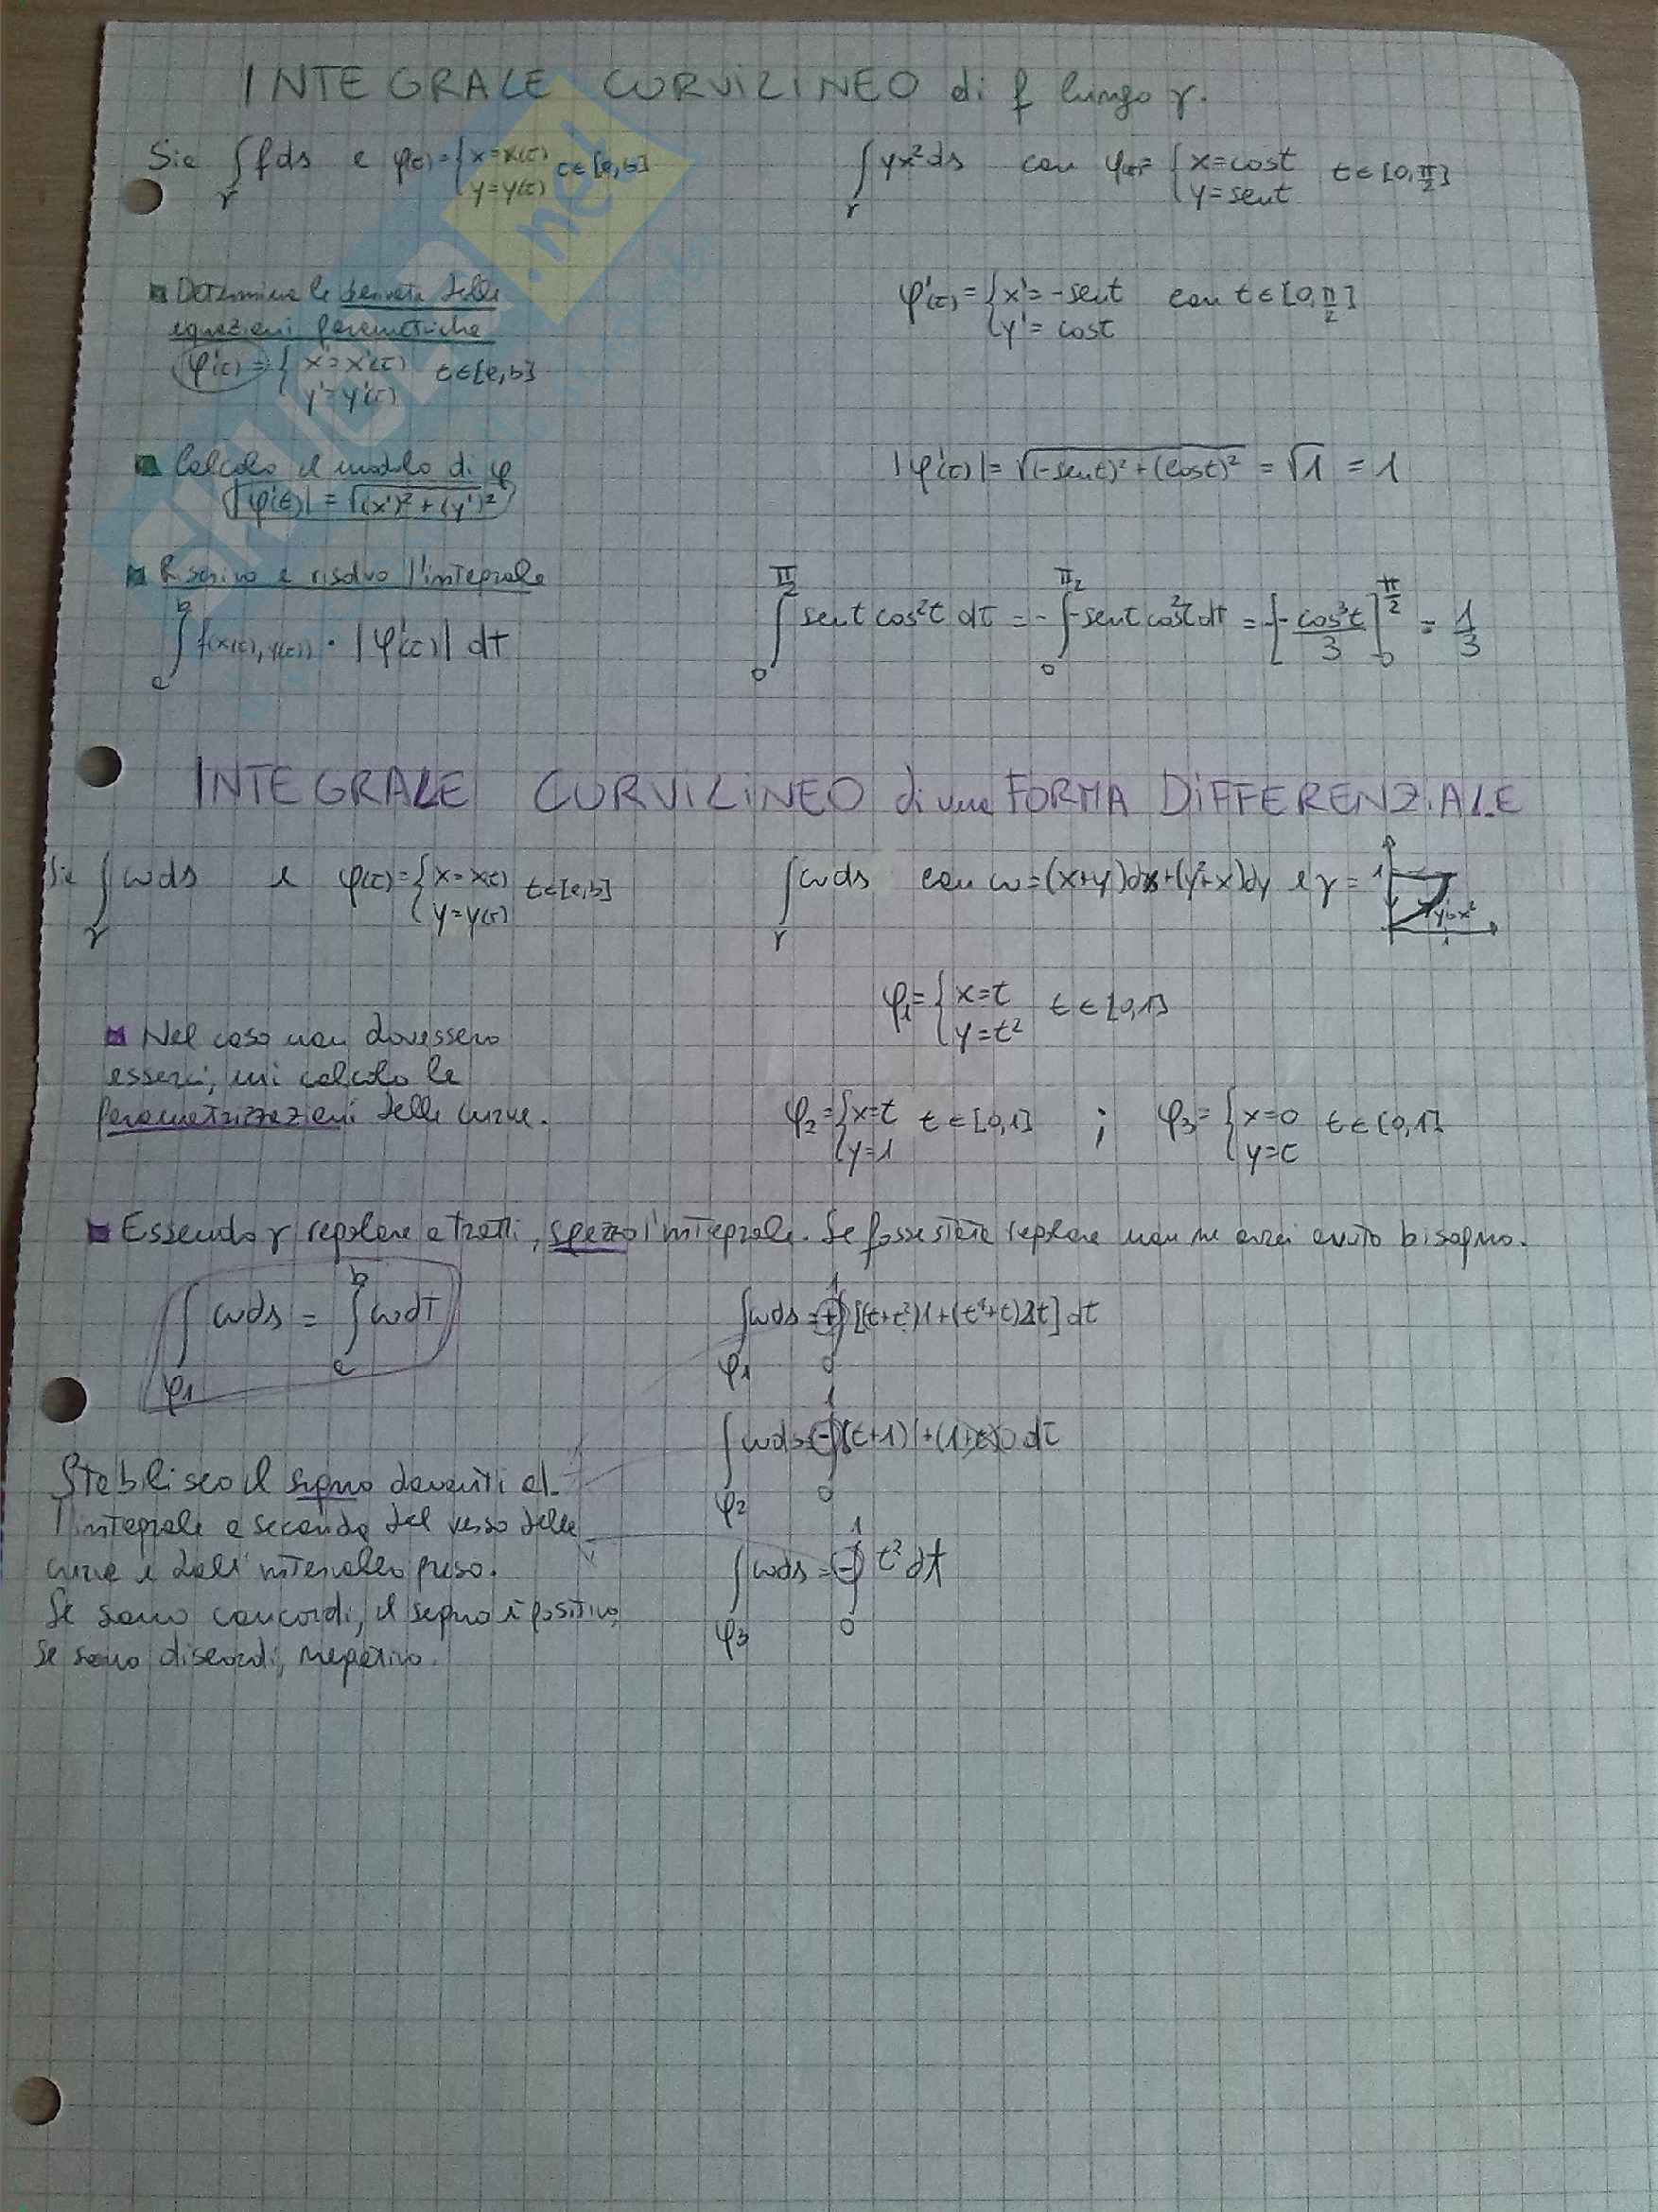 INTEGRALE CURVILINEO di f lungo γ.
Sia ∫γ f ds e φ(t)={x=x(t) y=y(t) t∈[a,b]
∫γ yx² ds con φ(t)={x=cost y=sent t∈[0,π/2]
Determino le derivate delle
equazioni parametriche
φ'(t)={x'=x'(t) y'=y'(t) t∈[a,b]
φ'(t)={x'=-sent y'=cost con t∈[0,π/2]
Calcolo il modulo di φ
|φ'(t)|=√(x')²+(y')²
|φ'(t)|=√(-sent)²+(cost)² = √1 = 1
Riscrivo e risolvo l'integrale
∫ₐᵇ f(x(t),y(t)) · |φ'(t)| dt
∫₀^π/2 sent cos²t dt = -∫₀^π/2 -sent cos²t dt = [-cos³t/3]₀^π/2 = 1/3
INTEGRALE CURVILINEO di una FORMA DIFFERENZIALE
Sia ∫γ ωds e φ(t)={x=x(t) y=y(t) t∈[a,b]
∫γ ωds con ω=(x+y)dx+(y²+x)dy e γ=
1
y=x²
1
φ₁={x=t y=t² t∈[0,1]
Nel caso non dovessero
esserci, mi calcolo le
parametrizzazioni delle curve.
φ₂={x=t y=1 t∈[0,1] ; φ₃={x=0 y=t t∈[0,1]
Essendo γ regolare a tratti, spezzo l'integrale. Se fosse stata regolare non ne avrei avuto bisogno.
∫φ₁ ωds = ∫ₐᵇ ωdt
∫φ₁ ωds=+∫₀¹[(t+t²)1+(t⁴+t)2t]dt
∫φ₂ ωds=-∫₀¹[(t+1)1+(1+t)0 dt
∫φ₃ ωds=-∫₀¹ t² dt
Stabilisco il segno davanti al-
l'integrale a seconda del verso della
curva e dall'intervallo preso.
Se sono concordi, il segno è positivo,
se sono discordi, negativo.
SKUOLA.net